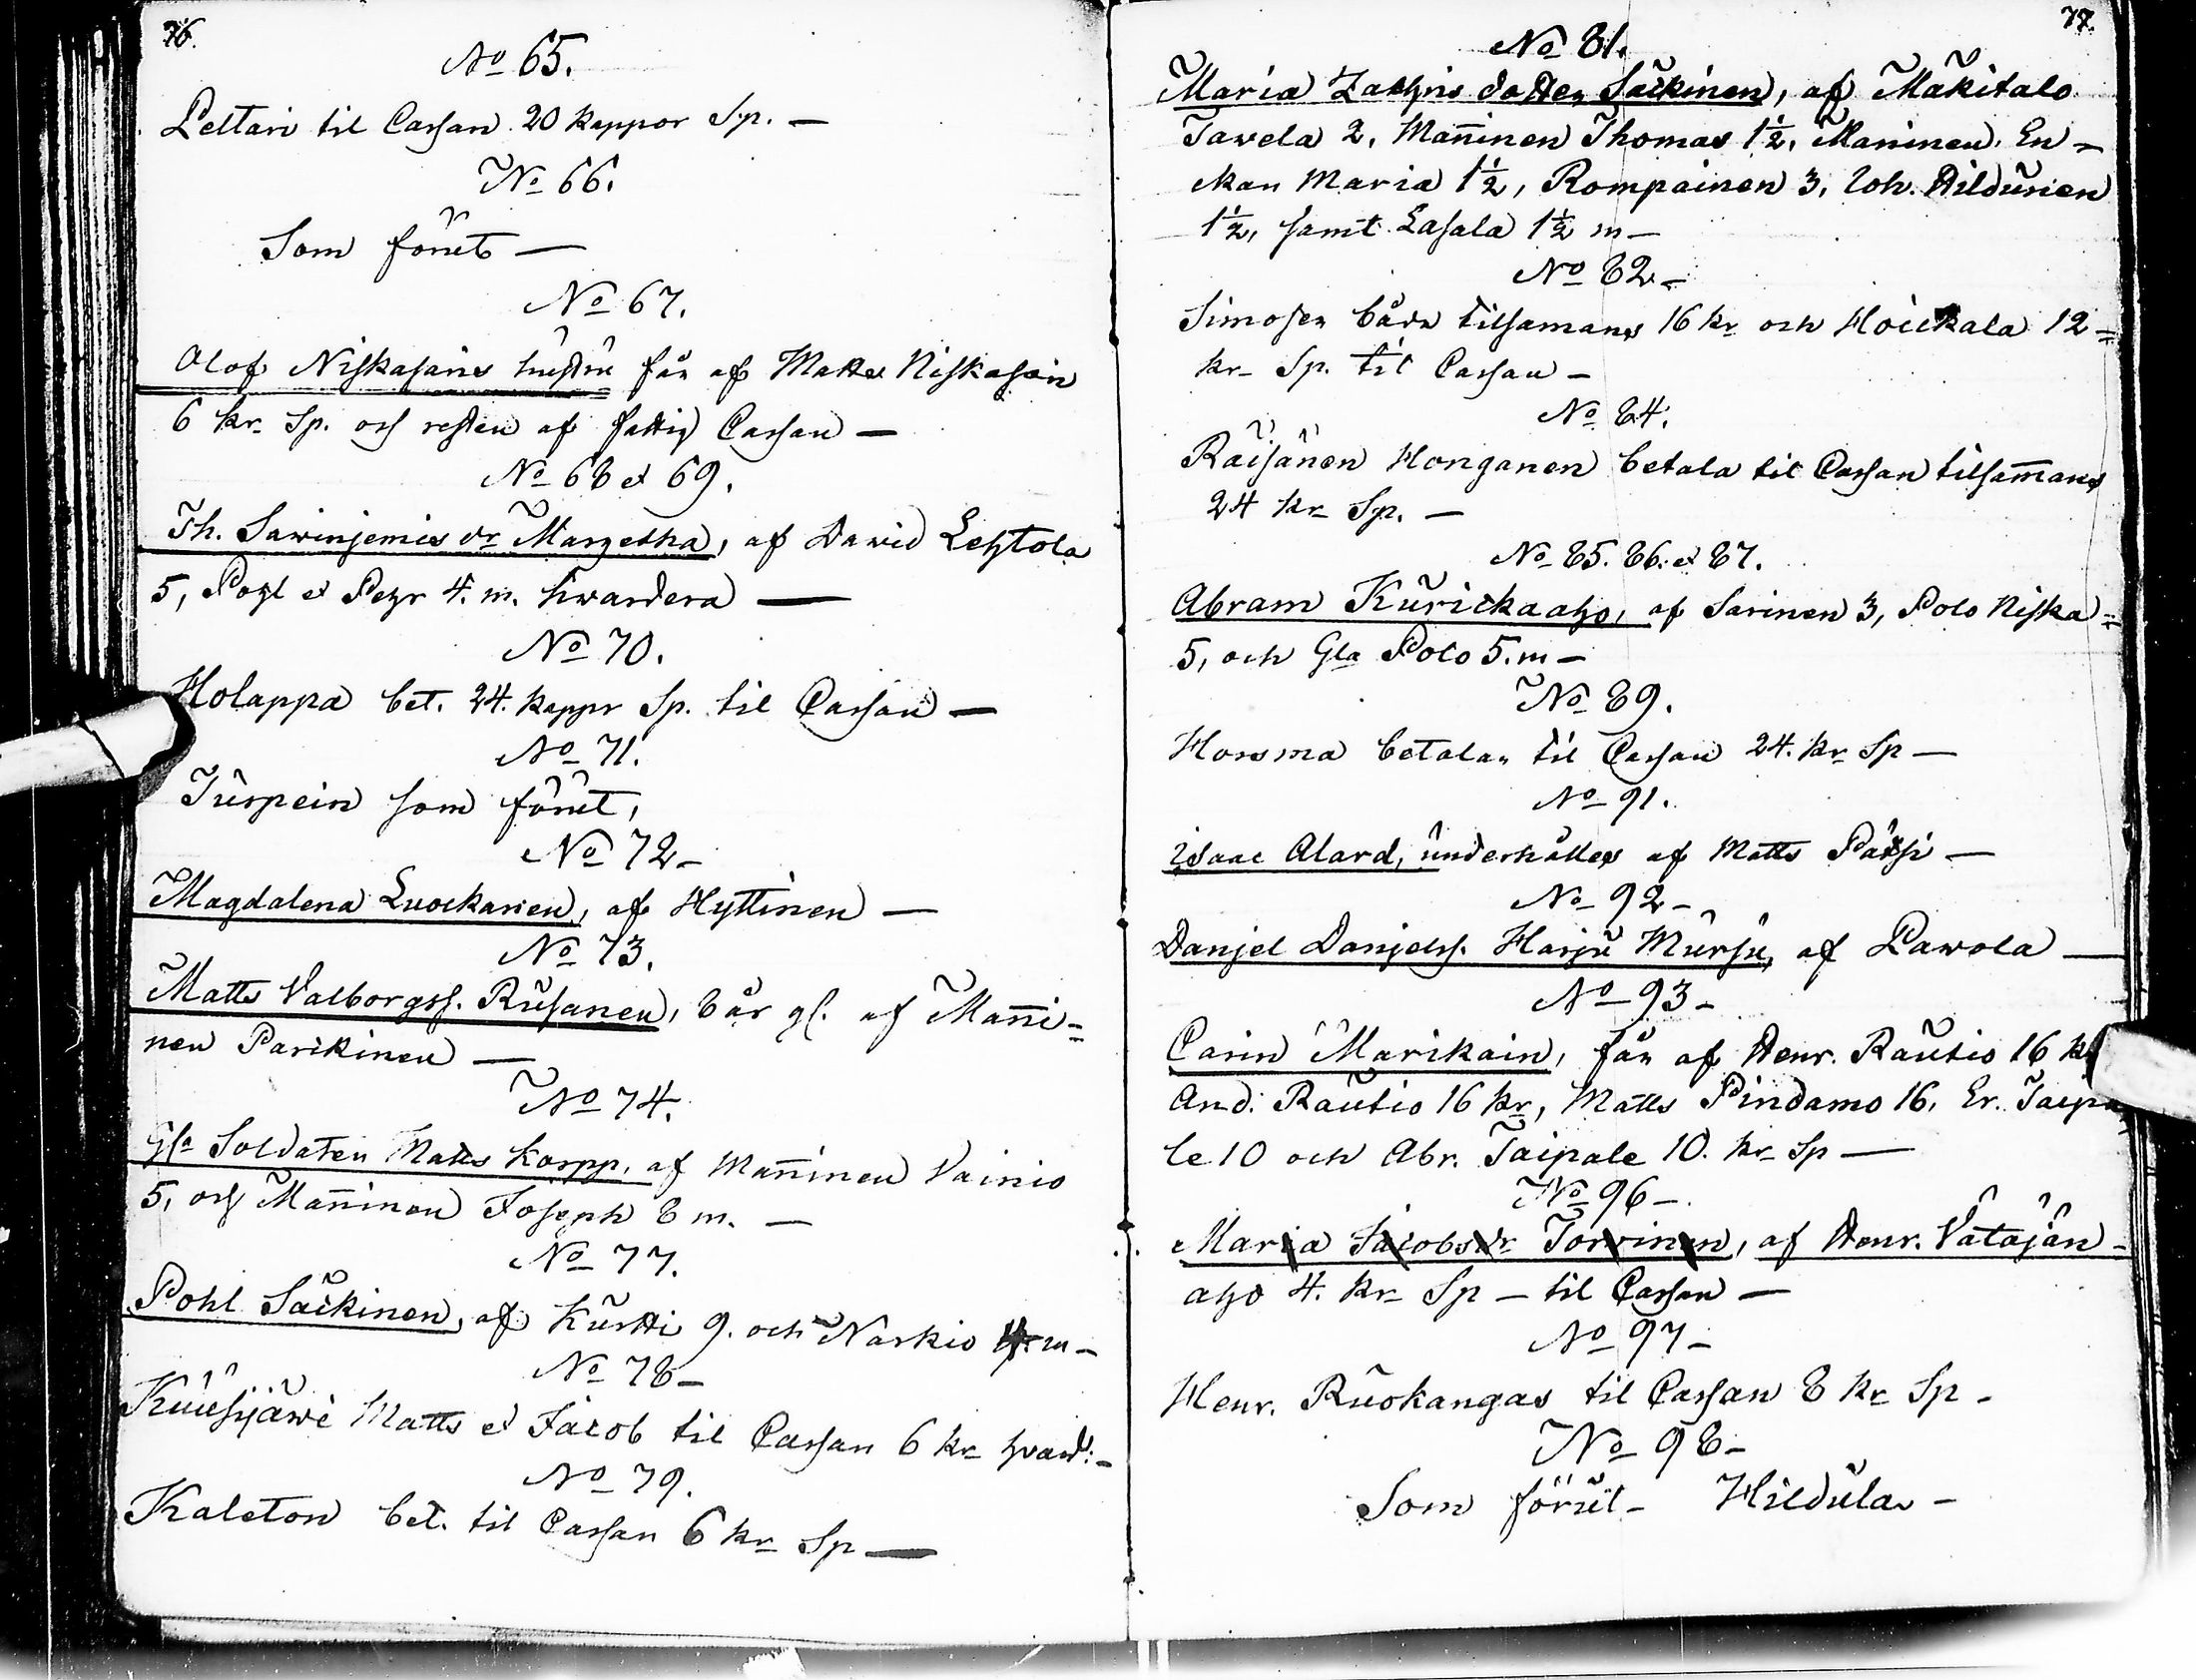 76.
No 65.
Pettari til Cassan 20 kappor Sp. —
No 66.
Som förut —
No 67.
Olof Niskasäns hustru får af Matts Niskasain
6 kr. Sp. och resten af fattig Cassan —
No 68 et 69.
Th. Sawinjemis dr Margetha, af David Lehtola
5, Pohl et Pehr 4. m. hwardera —
No 70.
Holappa bet. 24. kappr Sp. til Cassan —
No 71.
Jurpein som förut,
No 72 —
Magdalena Luockanen, af Hyttinen —
No 73.
Matts Valborgss. Rusanen, 8 år gl. af Man̄i=
nen Parikinen —
No 74.
Gla Soldaten Matts Korpp, af Man̄inen Vainio
5, och Man̄inen Joseph 8 m. —
No 77.
Pohl Säckinen, af Kurtti 9. och Narkio 4. m —
No 78 —
Kuusijäwi Matts et Jacob til Cassan 6 kr hvard. —
No 79.
Kaleton bet. til Cassan 6 kr Sp —
77.
No 81.
Maria Zachris dotter Säckinen, af Mäkitalo
Tawela 2, Man̄inen Thomas 1½, Maninen. En —
kan Maria 1½, Rompainen 3, Joh. Hildunen
1½, samt Lasala 1½ m —
No 82 —
Simosen båda tilsamans 16 kr och Hoickala 12 =
kr Sp. til Cassan —
No 84.
Räisänen Honganen betala til Cassan tilsam̄ans
24 kr Sp. —
No 85. 86. et 87.
Abram Kurickaaho, af Sarinen 3, Polo Niska =
5, och Gla Polo 5. m —
No 89.
Horsma betalar til Cassan 24. kr Sp —
No 91.
Isaac Alard, underhålles af Matts —
No 92 —
Danjel Danjelss. Harju Mursu, af Pawola —
No 93 —
Carin Marikain, får af Henr. Rautio 16 kr
And. Rautio 16 kr, Matts Pindamo 16, Er. Taipa
le 10 och Abr. Taipale 10. kr Sp —
No 96 —
Maria Jacobsdr Torvinen, af Henr. Vätäjän —
aho 4. kr Sp — til Cassan —
No 97 —
Henr. Ruokangas til Cassan 8 kr Sp —
No 98 —
Som förut — Hildula —